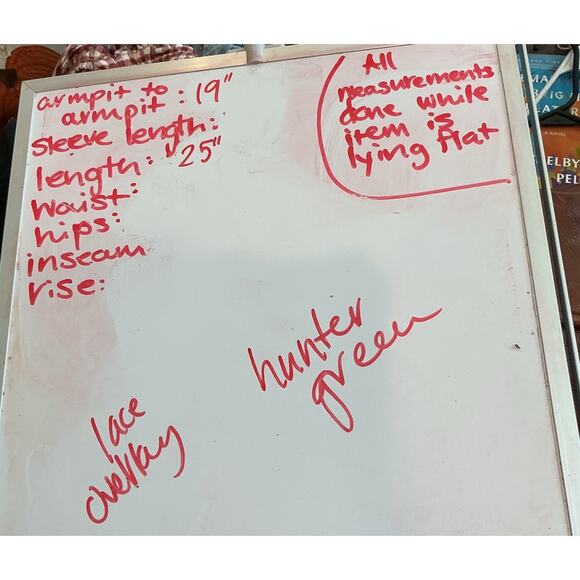 armpit to
armpit: 19"
sleeve length:
length: 25"
waist:
hips:
inseam
rise:
All
measurements
done while
item is
lying flat
hunter
green
lace
overlay
A NOVEL
ELBY
PEL